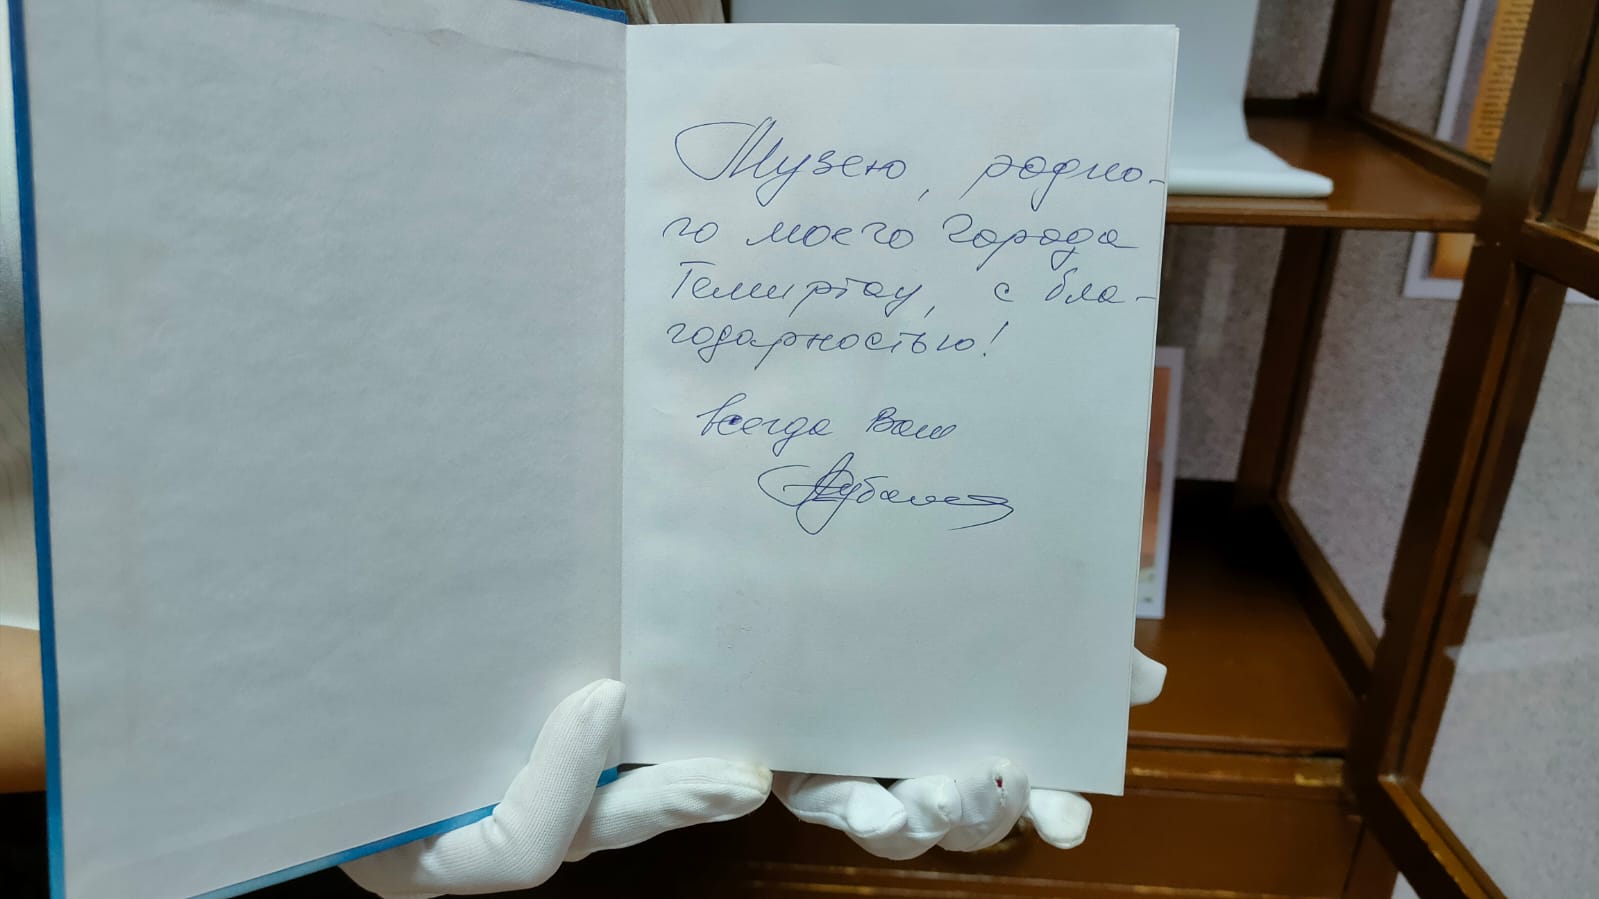 Музею, родно-
го моего города
Темиртау, с бла-
годарностью!
Всегда Ваш